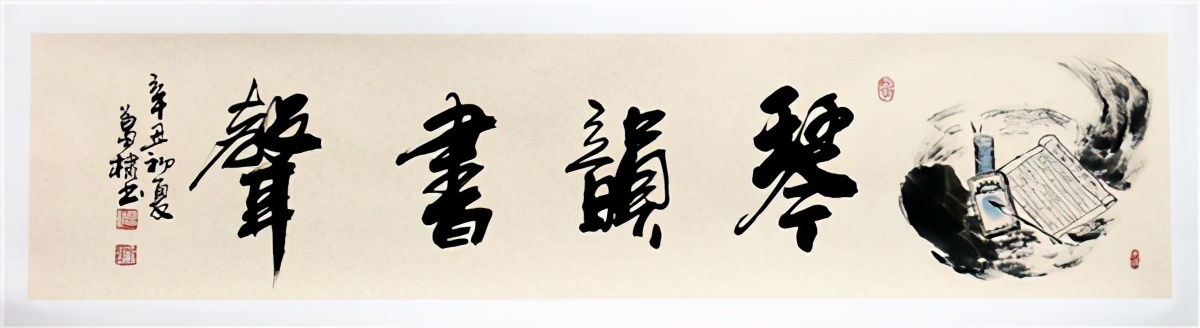 琴韻書聲
辛丑初夏